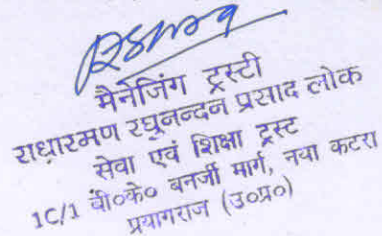 मैनेजिंग ट्रस्टी
राधारमण रघुनन्दन प्रसाद लोक
सेवा एवं शिक्षा ट्रस्ट
1C/1 बी०के० बनर्जी मार्ग, नया कटरा
प्रयागराज (उ०प्र०)